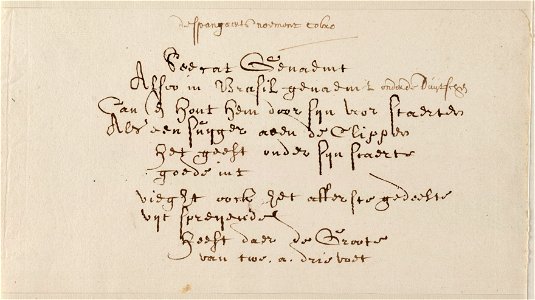 de spangaerts noement Cobre
Seecat Genaemt
Alsoo in Brasil genaemt onder de Duytsesen
Can en hout hem door syn vor staerten
Als een suyger aeen de Clippen
het geeft onder syn staerte
goede int
vieght oock het afterste gedeelte
uyt spreyende
heeft daer de Groote
van twe .a. drie voet